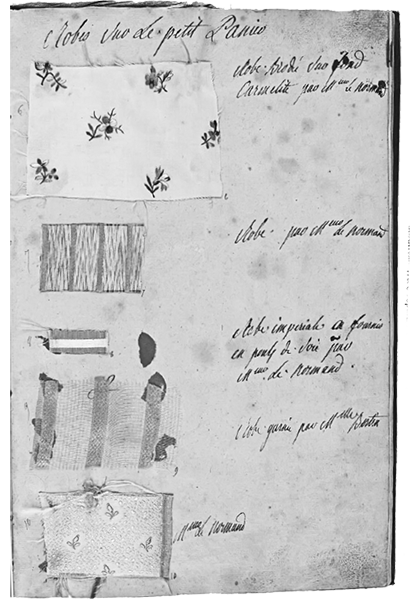 Robes sur Le petit Panier
6
Robe Brodée sur fond
Carmelite par M.me le normand
7
Robe par M.me le normand
Robe imperiale en
en poult de Soie par
M.me le normand.
9
Robe garnie par M.elle Bertin
10
M.me le normand